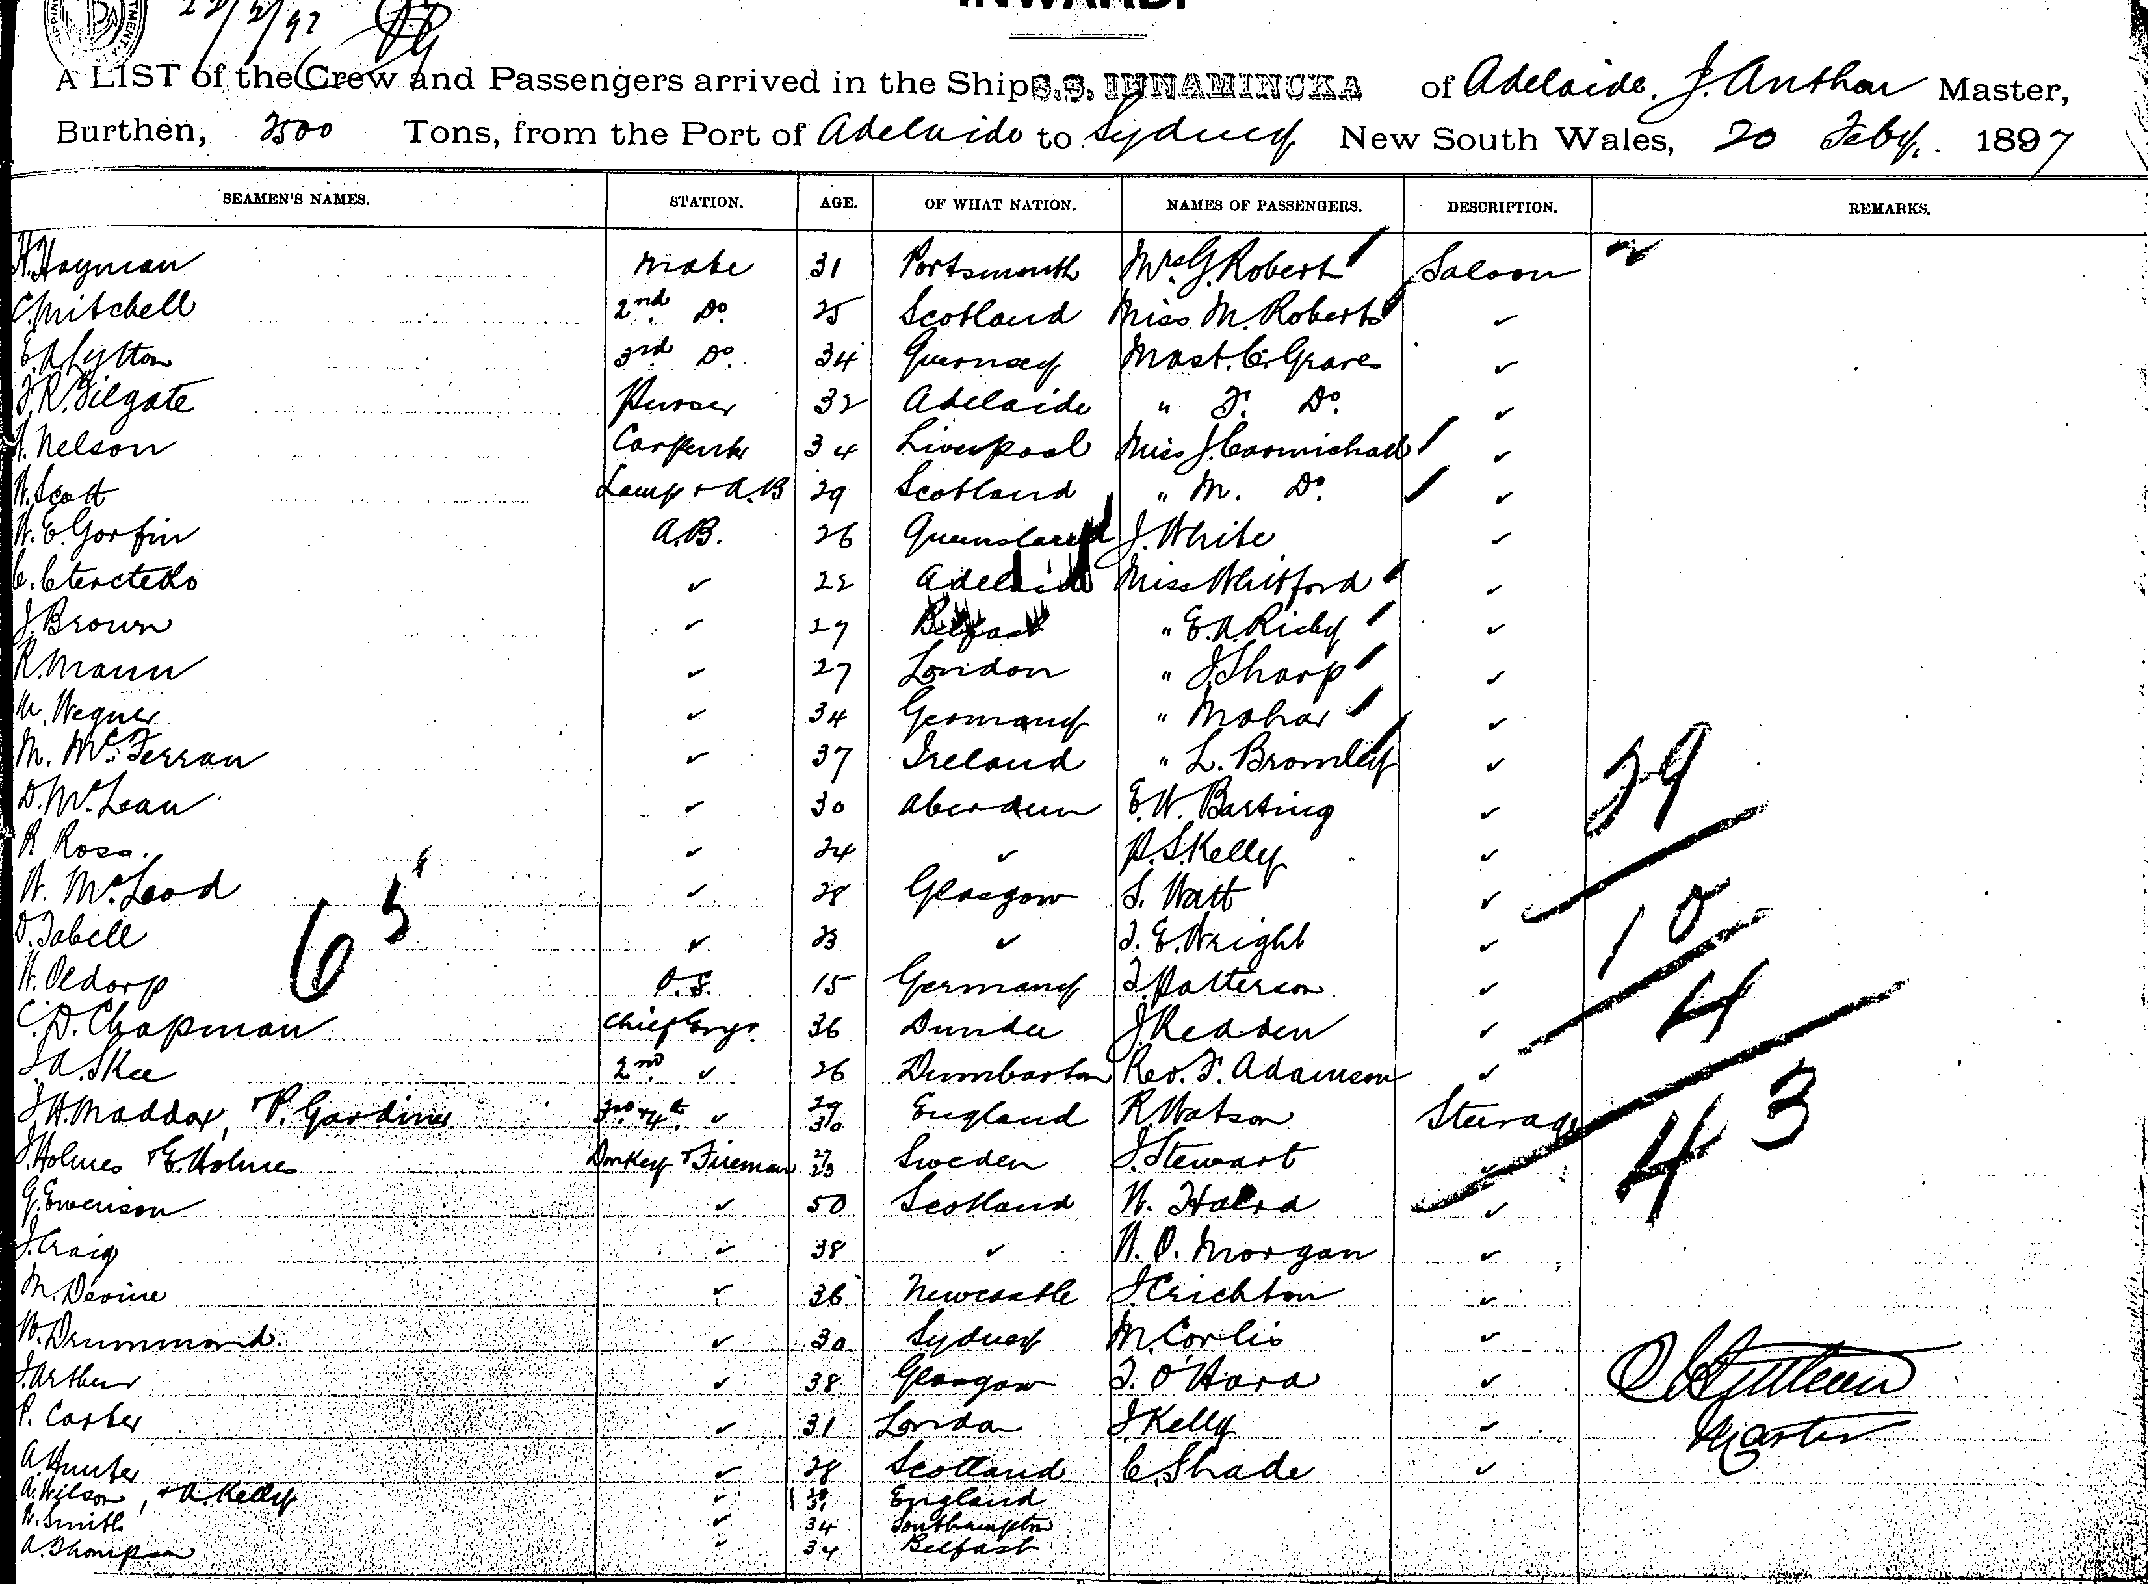 22/2/97
INWARD.
A LIST of the Crew and Passengers arrived in the Ship S.S. INNAMINCKA of Adelaide, J. Anthon Master,
Burthen, 2500 Tons, from the Port of Adelaide to Sydney New South Wales, 20 Feby. 1897
SEAMEN'S NAMES. STATION. AGE. OF WHAT NATION. NAMES OF PASSENGERS. DESCRIPTION. REMARKS.
H. Hayman Mate 31 Portsmouth Mrs G. Robert Saloon
C. Mitchell 2nd Do. 25 Scotland Miss M. Roberts ✓
E. A. Lytton 3rd Do. 34 Guernsey Mast. C. Graves ✓
F. R. Gilgate Purser 32 Adelaide " F. Do. ✓
A. Nelson Carpentr 34 Liverpool Miss J. Carmichael ✓
W. Scott Lamp & A.B 29 Scotland " M. Do. ✓
W. E. Gorfin A.B. 26 Queensland J. White ✓
C. ✓ 22 Adelaide Miss Whitford ✓
J. Brown ✓ 27 Belfast " E. A. Ricby ✓
R. Mann ✓ 27 London " J. Sharp ✓
Wegner ✓ 34 Germany " Mohar ✓
M. McFerran ✓ 37 Ireland " L. Bromley ✓
D. McLean ✓ 30 Aberdeen E. W. Barting ✓ 29
R Ross. ✓ 24 ✓ P. S. Kelly ✓
W. McLeod ✓ 28 Glasgow S. Watt ✓ 10
D. Tabell 65 ✓ 23 ✓ F. E. Wright ✓
W. Oldorp O.S. 15 Germany F. Patterson ✓ 4
C. D. Chapman Chief Engr. 36 Dundee J. Redden ✓
J. A. Skee 2nd ✓ 26 Dumbarton Rev. F. Adamson ✓ 43
J H. Maddox, & P. Gardiner 3rd & 4th ✓ 29 30 England R. Watson Steerage
J. Holmes & E. Holmes Donkey & Fireman 27 23 Sweden J. Stewart ✓
G. Ewenson ✓ 50 Scotland W. ✓
J. Craig ✓ 38 ✓ W. O. Morgan ✓
M. Devine ✓ 36 Newcastle J Crichton ✓
W. Drummond. ✓ 30 Sydney M. Corlis ✓
J. Arthur ✓ 38 Glasgow F. O'Hara ✓
P. Carter ✓ 31 London J Kelly ✓ Master
A. Hunter ✓ 28 Scotland C. Shade ✓
A. Wilson, & A. Kelly ✓ England
W. Smith ✓ 34 Southampton
A. Thompson ✓ 34 Belfast